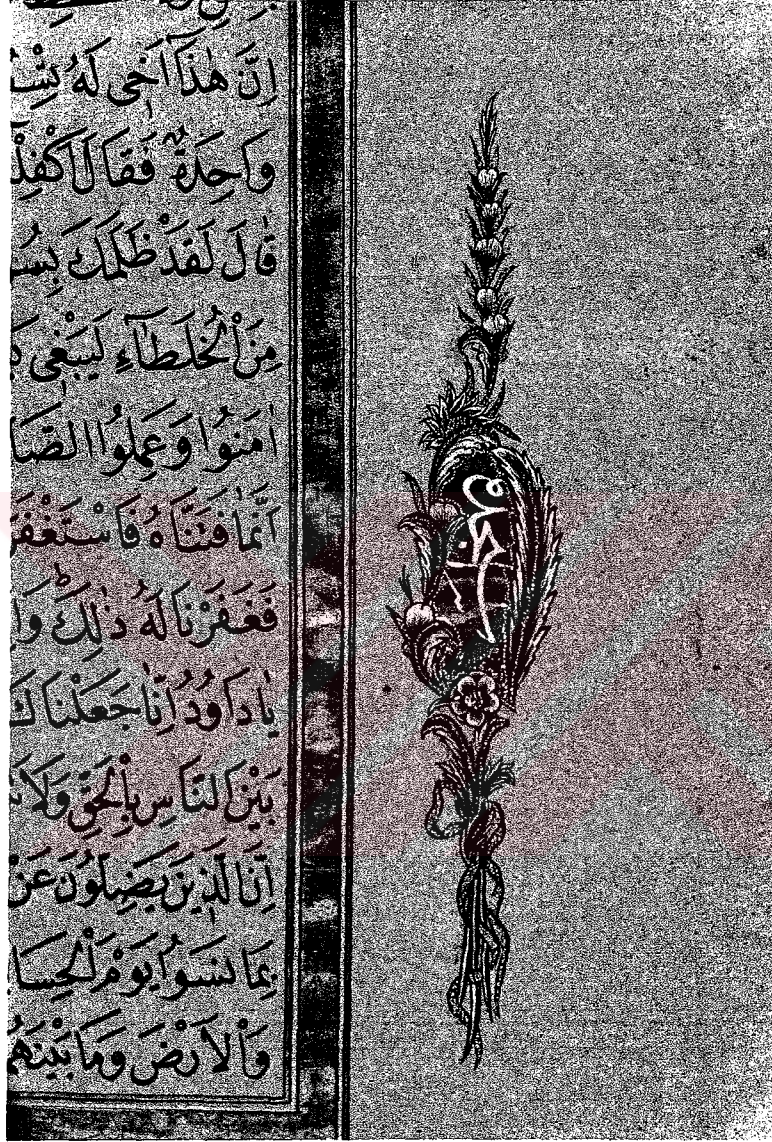 اِنَّ هٰذَٓا اَخٖى لَهُ تِسْـ
وَاحِدَةٌ فَقَالَ اَكْفِلْـ
قَالَ لَقَدْ ظَلَمَكَ بِسُـ
مِنَ الْخُلَطَٓاءِ لَيَبْغٖى
اٰمَنُوا وَعَمِلُوا الصَّا
اَنَّمَا فَتَنَّاهُ فَاسْتَغْفَرَ
فَغَفَرْنَا لَهُ ذٰلِكَ وَاِ
يَا دَاوُدُ اِنَّا جَعَلْنَاكَ
بَيْنَ النَّاسِ بِالْحَقِّ وَلَا
اِنَّ الَّذٖينَ يَضِلُّونَ عَنْ
بِمَا نَسُوا يَوْمَ الْحِسَا
وَالْاَرْضَ وَمَا بَيْنَهُمَ